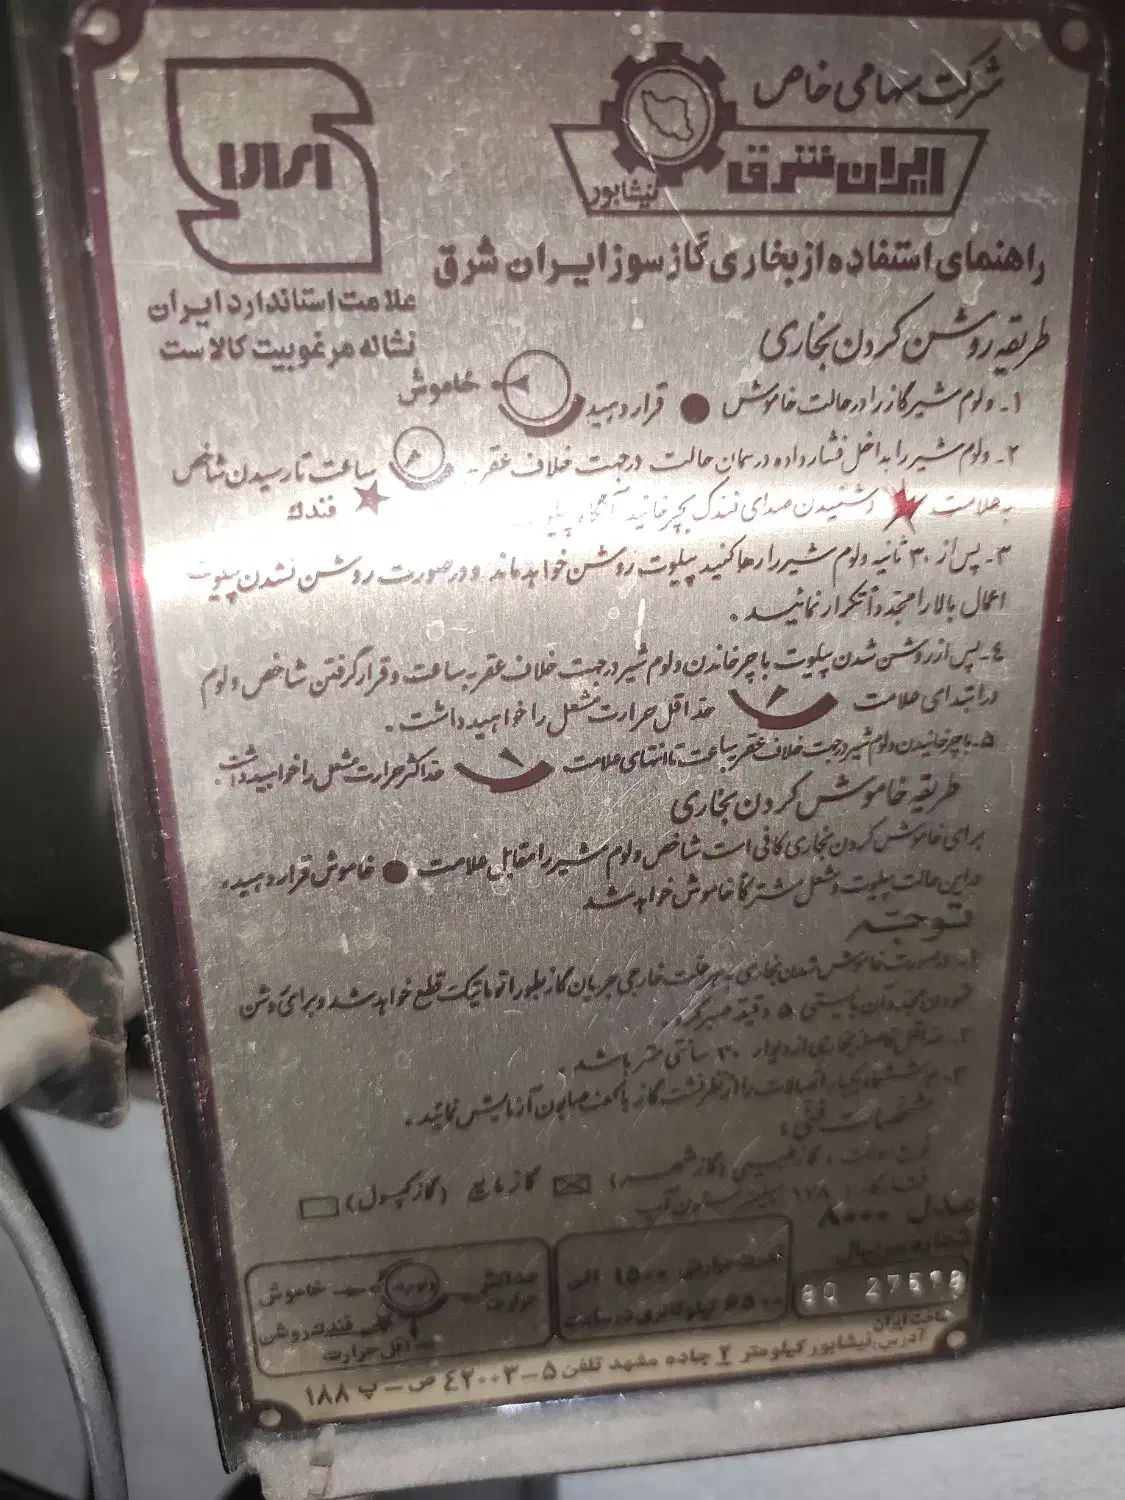 شرکت سهامی خاص
ایران شرق
نیشابور
راهنمای استفاده از بخاری گازسوز ایران شرق
علامت استاندارد ایران
نشانه مرغوبیت کالاست
طریقه روشن کردن بخاری
۱- ولوم شیر گاز را در حالت خاموش ● قرار دهید خاموش
۲- ولوم شیر را بداخل فشار داده در همان حالت در جهت خلاف عقربه ساعت تا رسیدن شاخص
به علامت و شنیدن صدای فندک بچرخانید آنگاه پیلوت ★ فندک
۳- پس از ۳۰ ثانیه ولوم شیر را رها کنید پیلوت روشن خواهد ماند و در صورت روشن نشدن پیلوت
اعمال بالا را مجدداً تکرار نمائید.
٤- پس از روشن شدن پیلوت با چرخاندن ولوم شیر در جهت خلاف عقربه ساعت و قرار گرفتن شاخص ولوم
در ابتدای علامت حداقل حرارت مشعل را خواهید داشت.
۵- با چرخانیدن ولوم شیر در جهت خلاف عقربه ساعت تا انتهای علامت حداکثر حرارت مشعل را خواهید داشت.
طریقه خاموش کردن بخاری
برای خاموش کردن بخاری کافی است شاخص ولوم شیر را مقابل علامت ● خاموش قرار دهید.
در این حالت پیلوت و مشعل مشترکاً خاموش خواهد شد
توجه
۱- در صورت خاموش شدن بخاری به هر علت خارجی جریان گاز بطور اتوماتیک قطع خواهد شد و برای روشن
نمودن مجدد آن بایستی ۵ دقیقه صبر کرد.
۲- حداقل فاصله بخاری از دیوار ۳۰ سانتی متر باشد.
۳- هر ششماه یکبار اتصالات را از نظر نشت گاز با کف صابون آزمایش نمائید.
مشخصات فنی:
نوع سوخت: گاز طبیعی (گاز شهر) گاز مایع (گاز کپسول)
فشار گاز: ۱۷۸ میلیمتر ستون آب
مدل ۸۰۰۰
شماره سریال
27518
قدرت حرارتی ۱۵۰۰ الی
۶۵۰۰ کیلوکالری در ساعت
حداکثر حرارت
ولوم
خاموش
فندک روشن
اقل حرارت
ساخت ایران
آدرس: نیشابور کیلومتر ۲ جاده مشهد تلفن ۵-٤۲۰۰۳ ص-پ ۱۸۸